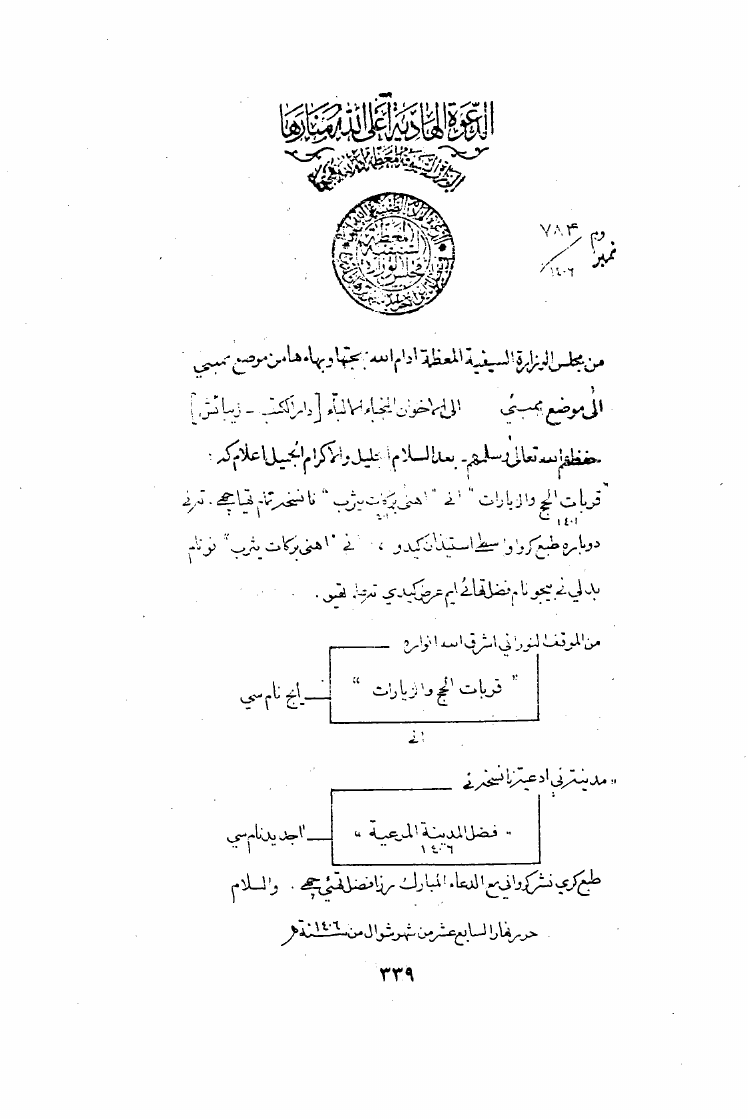 الدعوة الهادية أعلى الله منارها
الوزارة السيفية المعظمة
المعظمة
السيفية
مجلس الوزارة
نمبر وم ٧٨٤
١٤٠٦
من مجلس الوزارة السيفية المعظمة ادام الله بهجتها وبهاءها من موضع بمبئي
الى موضع بمبئي الى الاخوان النجباء الالباء [دار الكتب - زيبائش]
حفظهم الله تعالى وسلمهم - بعد السلام الجليل والاكرام الجميل اعلام كه :
"قربات الحج والزيارات" انے "اهنى بركات يثرب" نا نسخه تمام تهيا چهے . تدني
١٤٠١
دوباره طبع كروا واسطے استيذان كيدو ، انے "اهنى بركات يثرب" نو نام
بدلي نے بيجو نام فضل تهائے ايم عرض كيدي تهي .
من الموقف النوراني اشرق الله انواره
" قربات الحج والزيارات " ايج نام سي
انے
" مدينة ني ادعية نا نسخه نے
" فضل المدينة المرعية " اجديد نام سي
١٤٠٦
طبع كري نشر كرواني مع الدعاء المبارك رزا فضل تهئي چهے . والسلام
حرر نهار السابع عشر من شهر شوال من سنة ١٤٠٦ه
٣٣٩